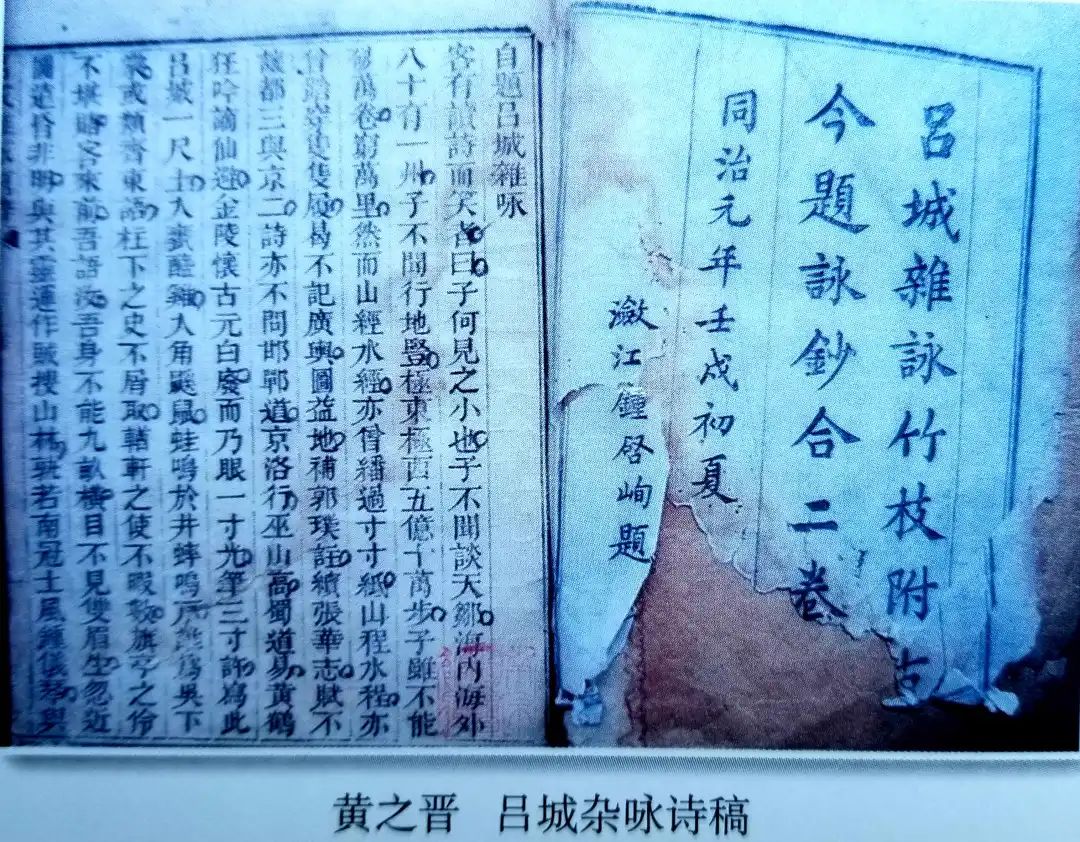 呂城雜詠竹枝附古
今題詠鈔合二卷
同治元年壬戌初夏
瀲江鍾啓峋題
自題呂城雜咏
客有讀詩而笑者曰子何見之小也子不聞談天鄒海內海外
八十有一州子不聞行地豎極東極西五億十萬步子雖不能
破萬卷窮萬里然而山經水經亦曾繙過寸寸紙山程水程亦
曾踏穿隻履曷不記廣輿圖益地補郭璞註續張華志賦不
都三與京二詩亦不問邯鄲道京洛行巫山高蜀道易黃鶴
狂吟謫仙避金陵懷古元白廢而乃眼一寸光筆三寸許為此
呂城一尺土醯雞角鼷鼠蛙鳴於井蟀鳴為吳下
或類齊東語下之史不屑取軒之使不暇旗亭之伶
不堪客來前吾語汝吾身不能九畝橫目不見雙眉生忽近
圖遠非明與其靈運作賊搜山林孰若南冠土風鍾儀與
黄之晋 吕城杂咏诗稿